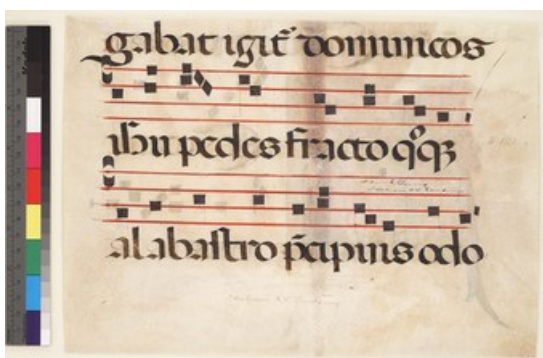 gabat igit̃ dominicos
ihu pedes fracto qͦqꝫ
alabastro p̃cipuus odo